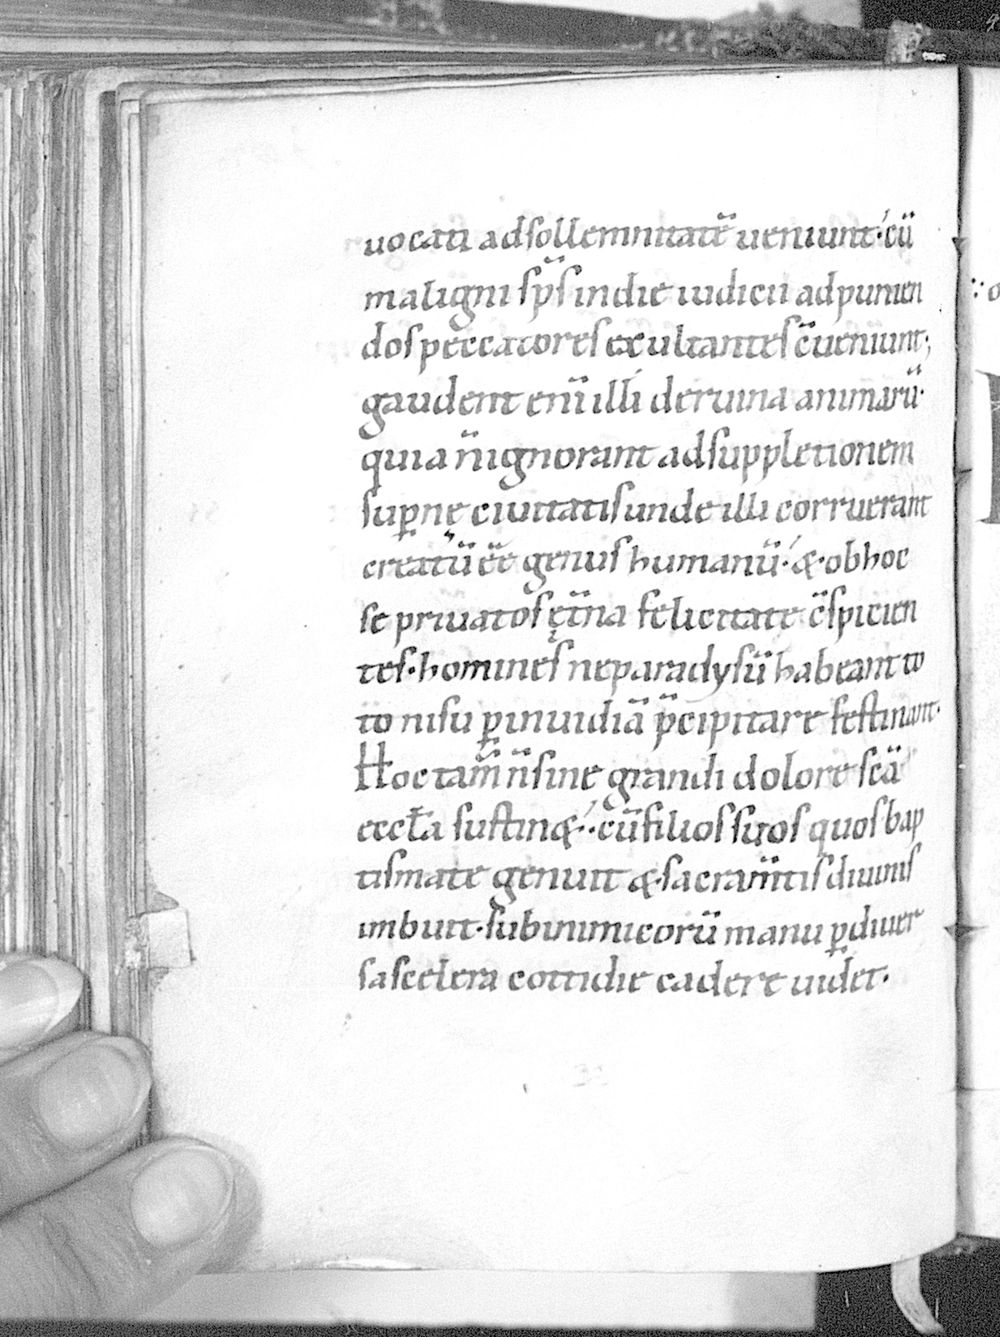 uocati ad sollemnitatē ueniunt· cū
maligni sp̄s in die iudicii ad punien
dos peccatores exultantes c̄ueniunt;
gaudent enī illi de ruina animarū·
quia n̄ ignorant ad suppletionem
sup̱nę ciuitatis unde illi corruerant
creatū eē̄ genus humanū· & ob hoc
se priuatos ęt̄na felicitate c̄spicien
tes· homines ne paradysū habeant to
to nisu p̱ inuidiā p̄cipitare festinant·
Hoc tam̄ n̄ sine grandi dolore scā
eccła sustin&· cū filios suos quos bap
tismate genuit & sacram̄tis diuinis
imbuit· sub inimicorū manu p̱ diuer
sa scelera cottidie cadere uidet·